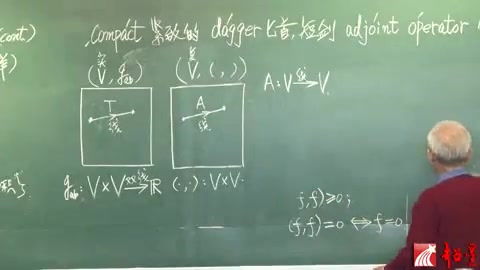 (cont)
compact 紧致的 dagger 匕首,短剑 adjoint operator
实 复
(V, g_ab) (V, ( , )) A: V →线 V
T A
线 线
g_ab: V×V →双线 ℝ (·,·): V×V
f,f)≥0;
(f,f)=0 ⟺ f=0